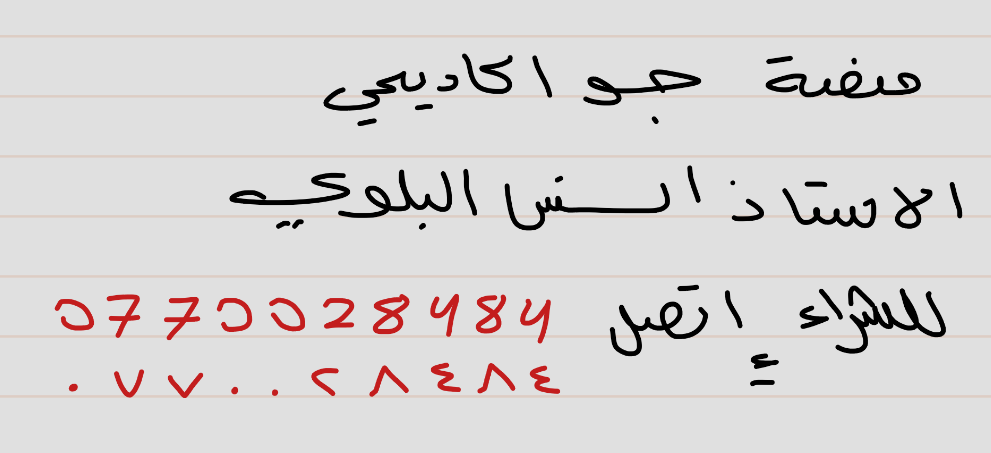 منصة جو اكاديمي
الاستاذ انس البلوي
للشراء إتصل 0770028484
٠٧٧٠٠٢٨٤٨٤